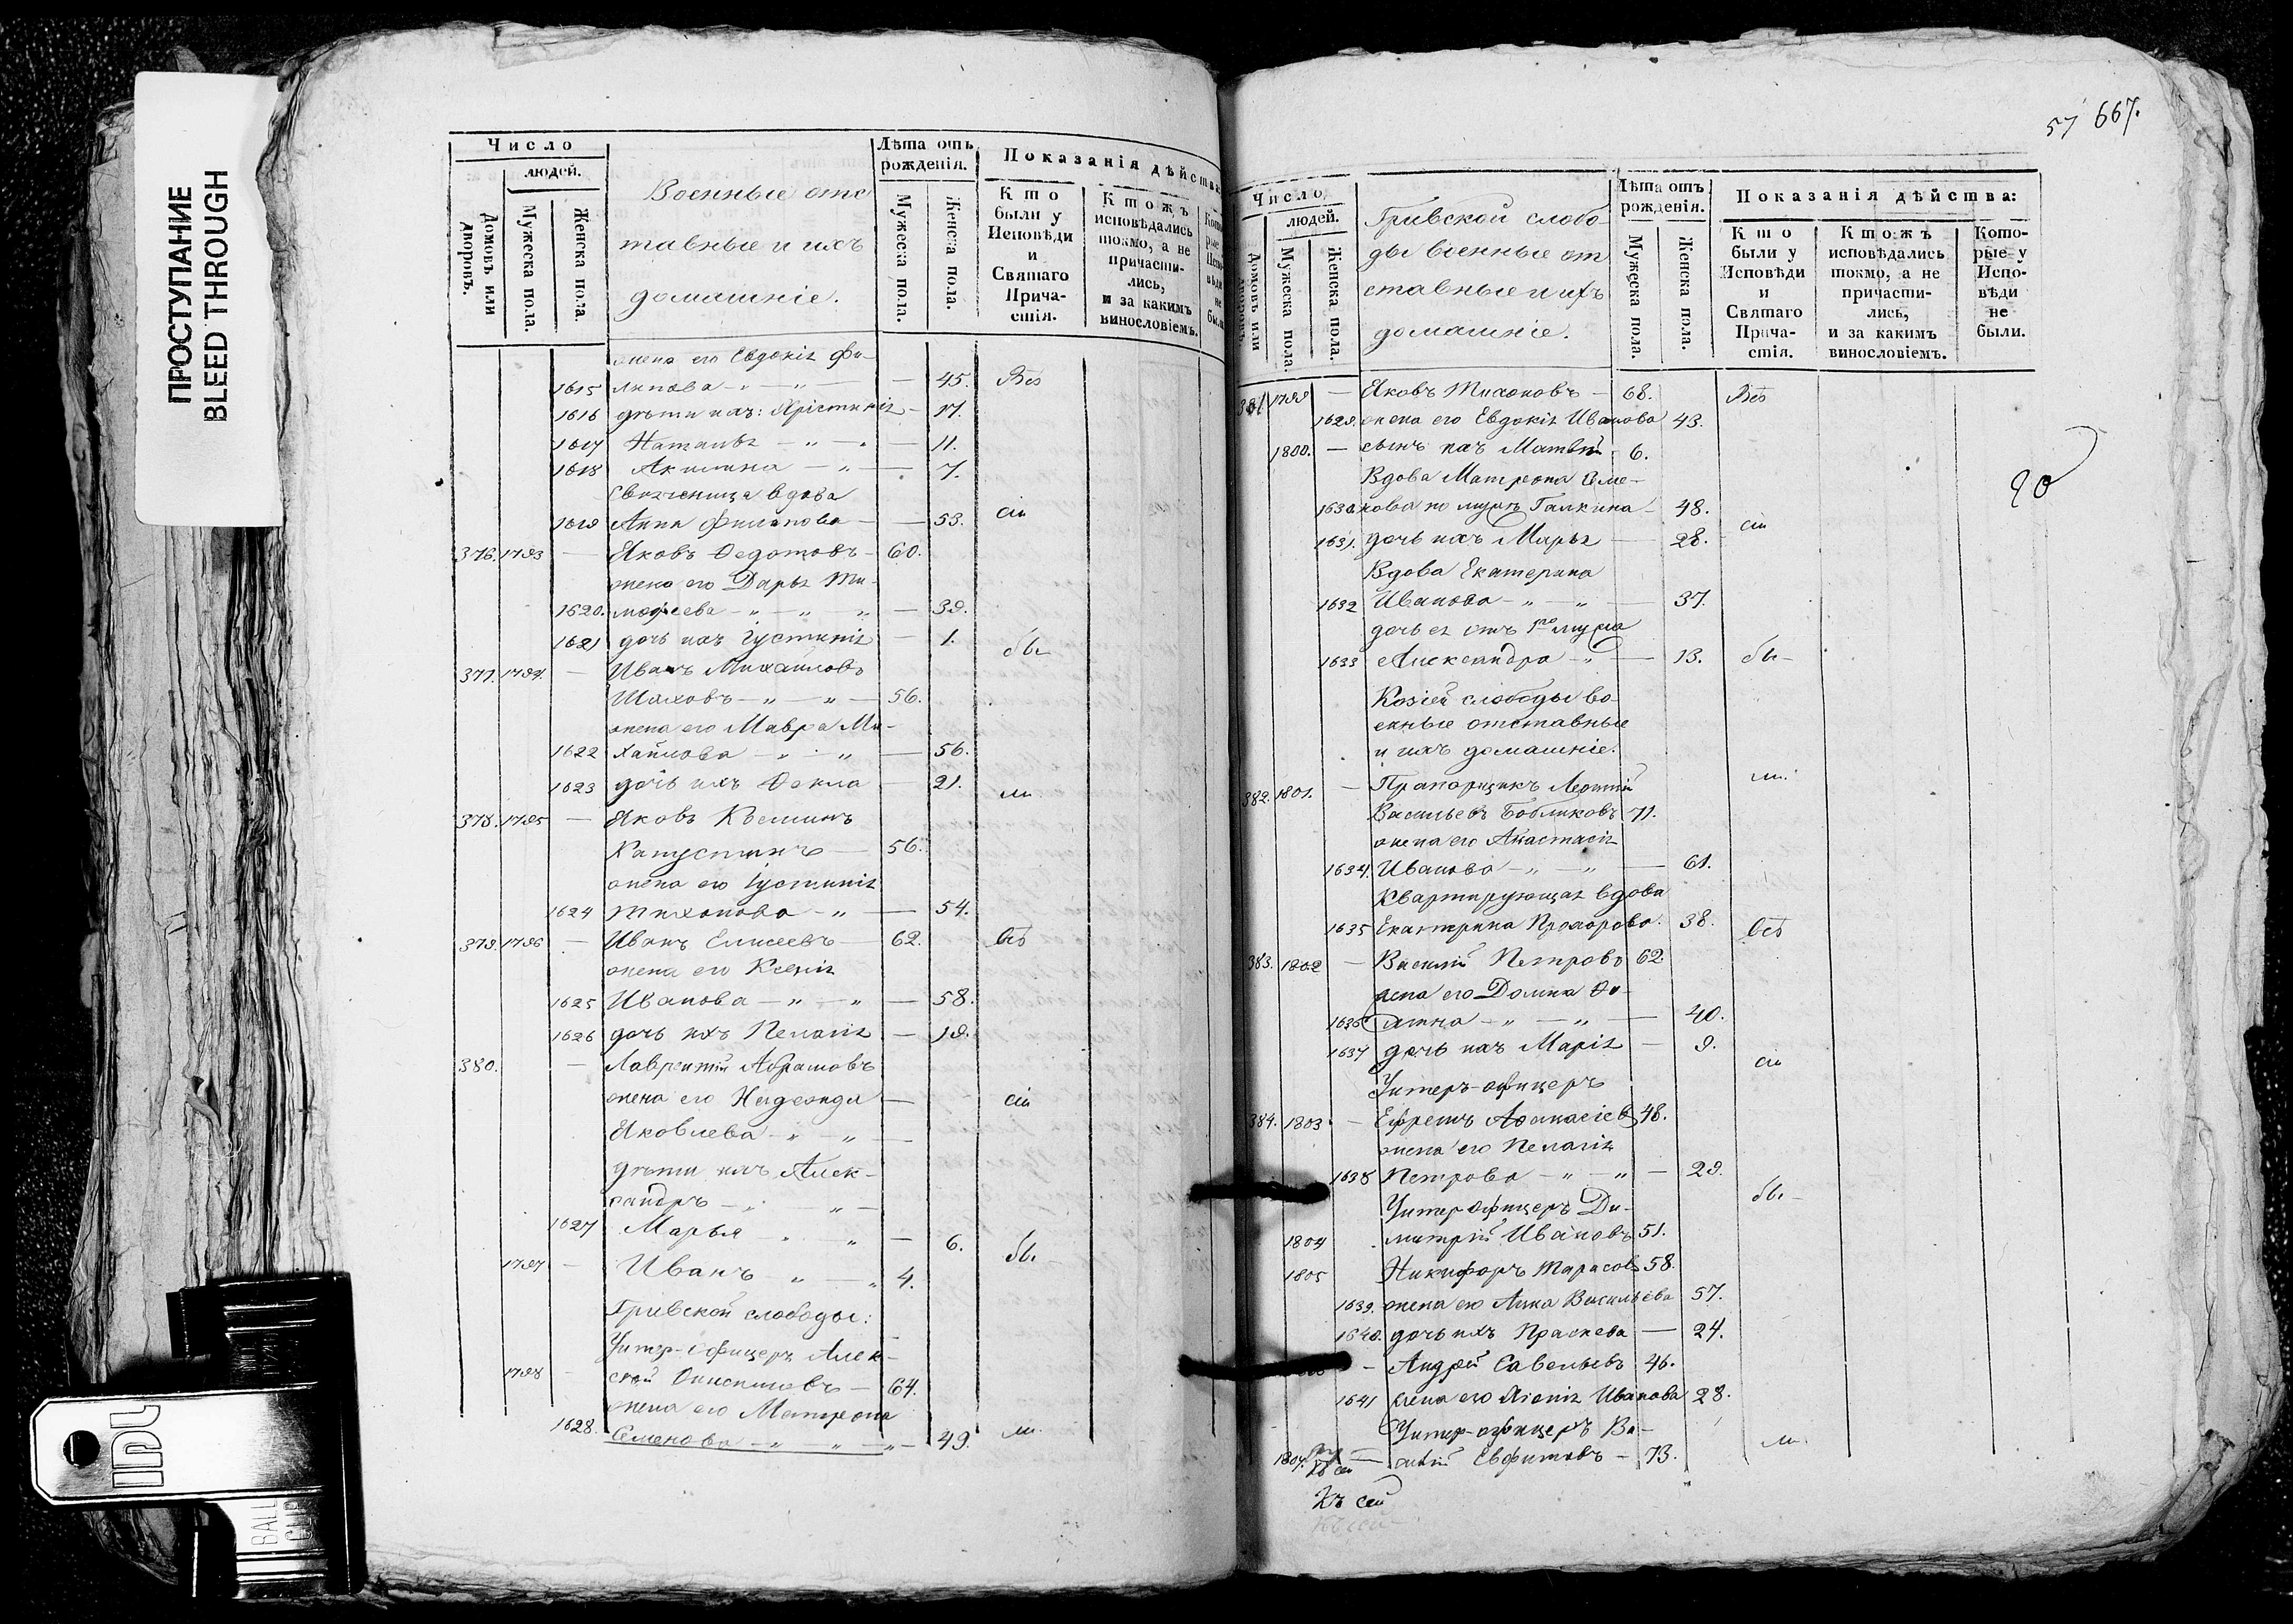 ПРОСТУПАНИЕ
BLEED THROUGH
Число
людей.
Домовъ или дворовъ.
Мужеска пола.
Женска пола.
Военные отс
тавные и ихъ
домашніе.
Лѣта отъ рожденія.
Мужеска пола.
Женска пола.
Показанія дѣйства:
Кто были у Исповѣди и Святаго Причастія.
Ктожъ исповѣдались токмо, а не причастились, и за какимъ винословіемъ.
жена его Евдокія Фи-
1615 липова — „ — — 45. Всѣ
1616 дѣти ихъ: Христинія — 17.
1617 Наталья — „ — 11.
1618 Акилина — „ — 7.
Свояченица вдова
1619 Анна Филипова — — 53. сіи
376. 1793 — Яковъ Федотовъ — 60.
жена его Дарья Ти-
1620. мофеева — „ — „ — 39.
1621 дочь ихъ Іустинія — 1. бы-
377. 1794. — Иванъ Михайловъ
Шаховъ — „ — „ — 56.
жена его Мавра Ми-
1622 хайлова — „ — 56.
1623 дочь ихъ Фекла — 21. ли.
378. 1795 — Яковъ Косминъ
Капустинъ — 56.
жена его Іустинія
1624 Тихонова — „ — 54.
379. 1796 — Иванъ Елисеевъ — 62. всѣ
жена его Ксенія
1625 Иванова — „ — „ — 58.
1626 дочь ихъ Пелагія — 19.
380. — Лаврентій Абрамовъ
жена его Надежда — сіи
Яковлева — „ — „ —
дѣти ихъ Алек-
сандръ — „ — „ —
1627 Марья „ — „ — 6. бы-
1797 — Иванъ „ — „ 4.
Гривской слободы:
Унтер-офицеръ Алек-
1798 — сѣй Онисимовъ — 64.
жена его Матрена
1628. Семенова — „ — „ — 49. ли.
57 667.
Число
людей.
Домовъ или дворовъ.
Мужеска пола
Женска пола.
Гривской слобо-
ды военные от
ставные и ихъ
домашніе.
Лѣта отъ рожденія.
Мужеска пола.
Женска пола.
Показанія дѣйства:
Кто были у Исповѣди и Святаго Причастія.
Ктожъ исповѣдались токмо, а не причастились, и за какимъ винословіемъ.
Которые у Исповѣди не были.
381 1799 — Яковъ Тихоновъ — 68. Всѣ
1629. жена его Евдокія Иванова 43.
1800. — сынъ ихъ Матвѣй — 6.
Вдова Матрена Семе-
1630 нова по мужѣ Галкина — 48. сіи
1631. дочь ихъ Марья — 28.
Вдова Екатерина
1632 Иванова — „ — „ — 37.
дочь ея отъ 1го мужа
1633 Александра — „ — 13. бы-
Козіей слободы во-
енные отставные
и ихъ домашніе.
382. 1801. — Прапорщикъ Леонтій ли.
Васильевъ Бобликовъ 71.
жена его Анастасія
1634. Иванова — „ — „ — 61.
Квартирующая вдова
1635 Екатерина Прохорова. 38. всѣ
383. 1802 — Василій Петровъ 62.
жена его Домна Фо-
1636 мина — „ — „ — 40.
1637 дочь ихъ Марія — 9. сіи
Унтеръ-офицеръ
384. 1803 — Ефремъ Афанасіевъ 48.
жена его Пелагія
1638 Петрова — „ — „ — 29.
Унтер офицеръ Ди- бы-
1804 митрій Ивановъ 51.
1805 Никифоръ Тарасовъ 58.
1639. жена его Анна Васильева 57.
1640. дочь ихъ Праскева — 24.
— Андрей Савельевъ 46.
1641 жена его Ксенія Иванова 28.
Унтер-офицеръ Ва- ли.
1807. — силій Евфимовъ — 73.
Къ сей
IDL
BALL
CLIP